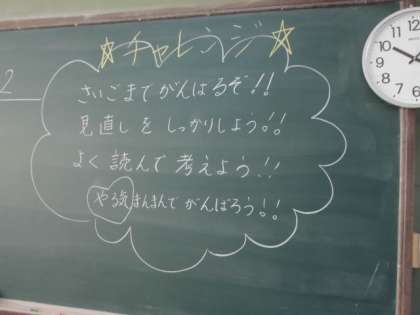 ☆チャレンジ☆
さいごまでがんばるぞ!!
見直しをしっかりしよう!!
よく読んで考えよう!!
やる気まんまんでがんばろう!!
2
10
11
12
9
8
7
6